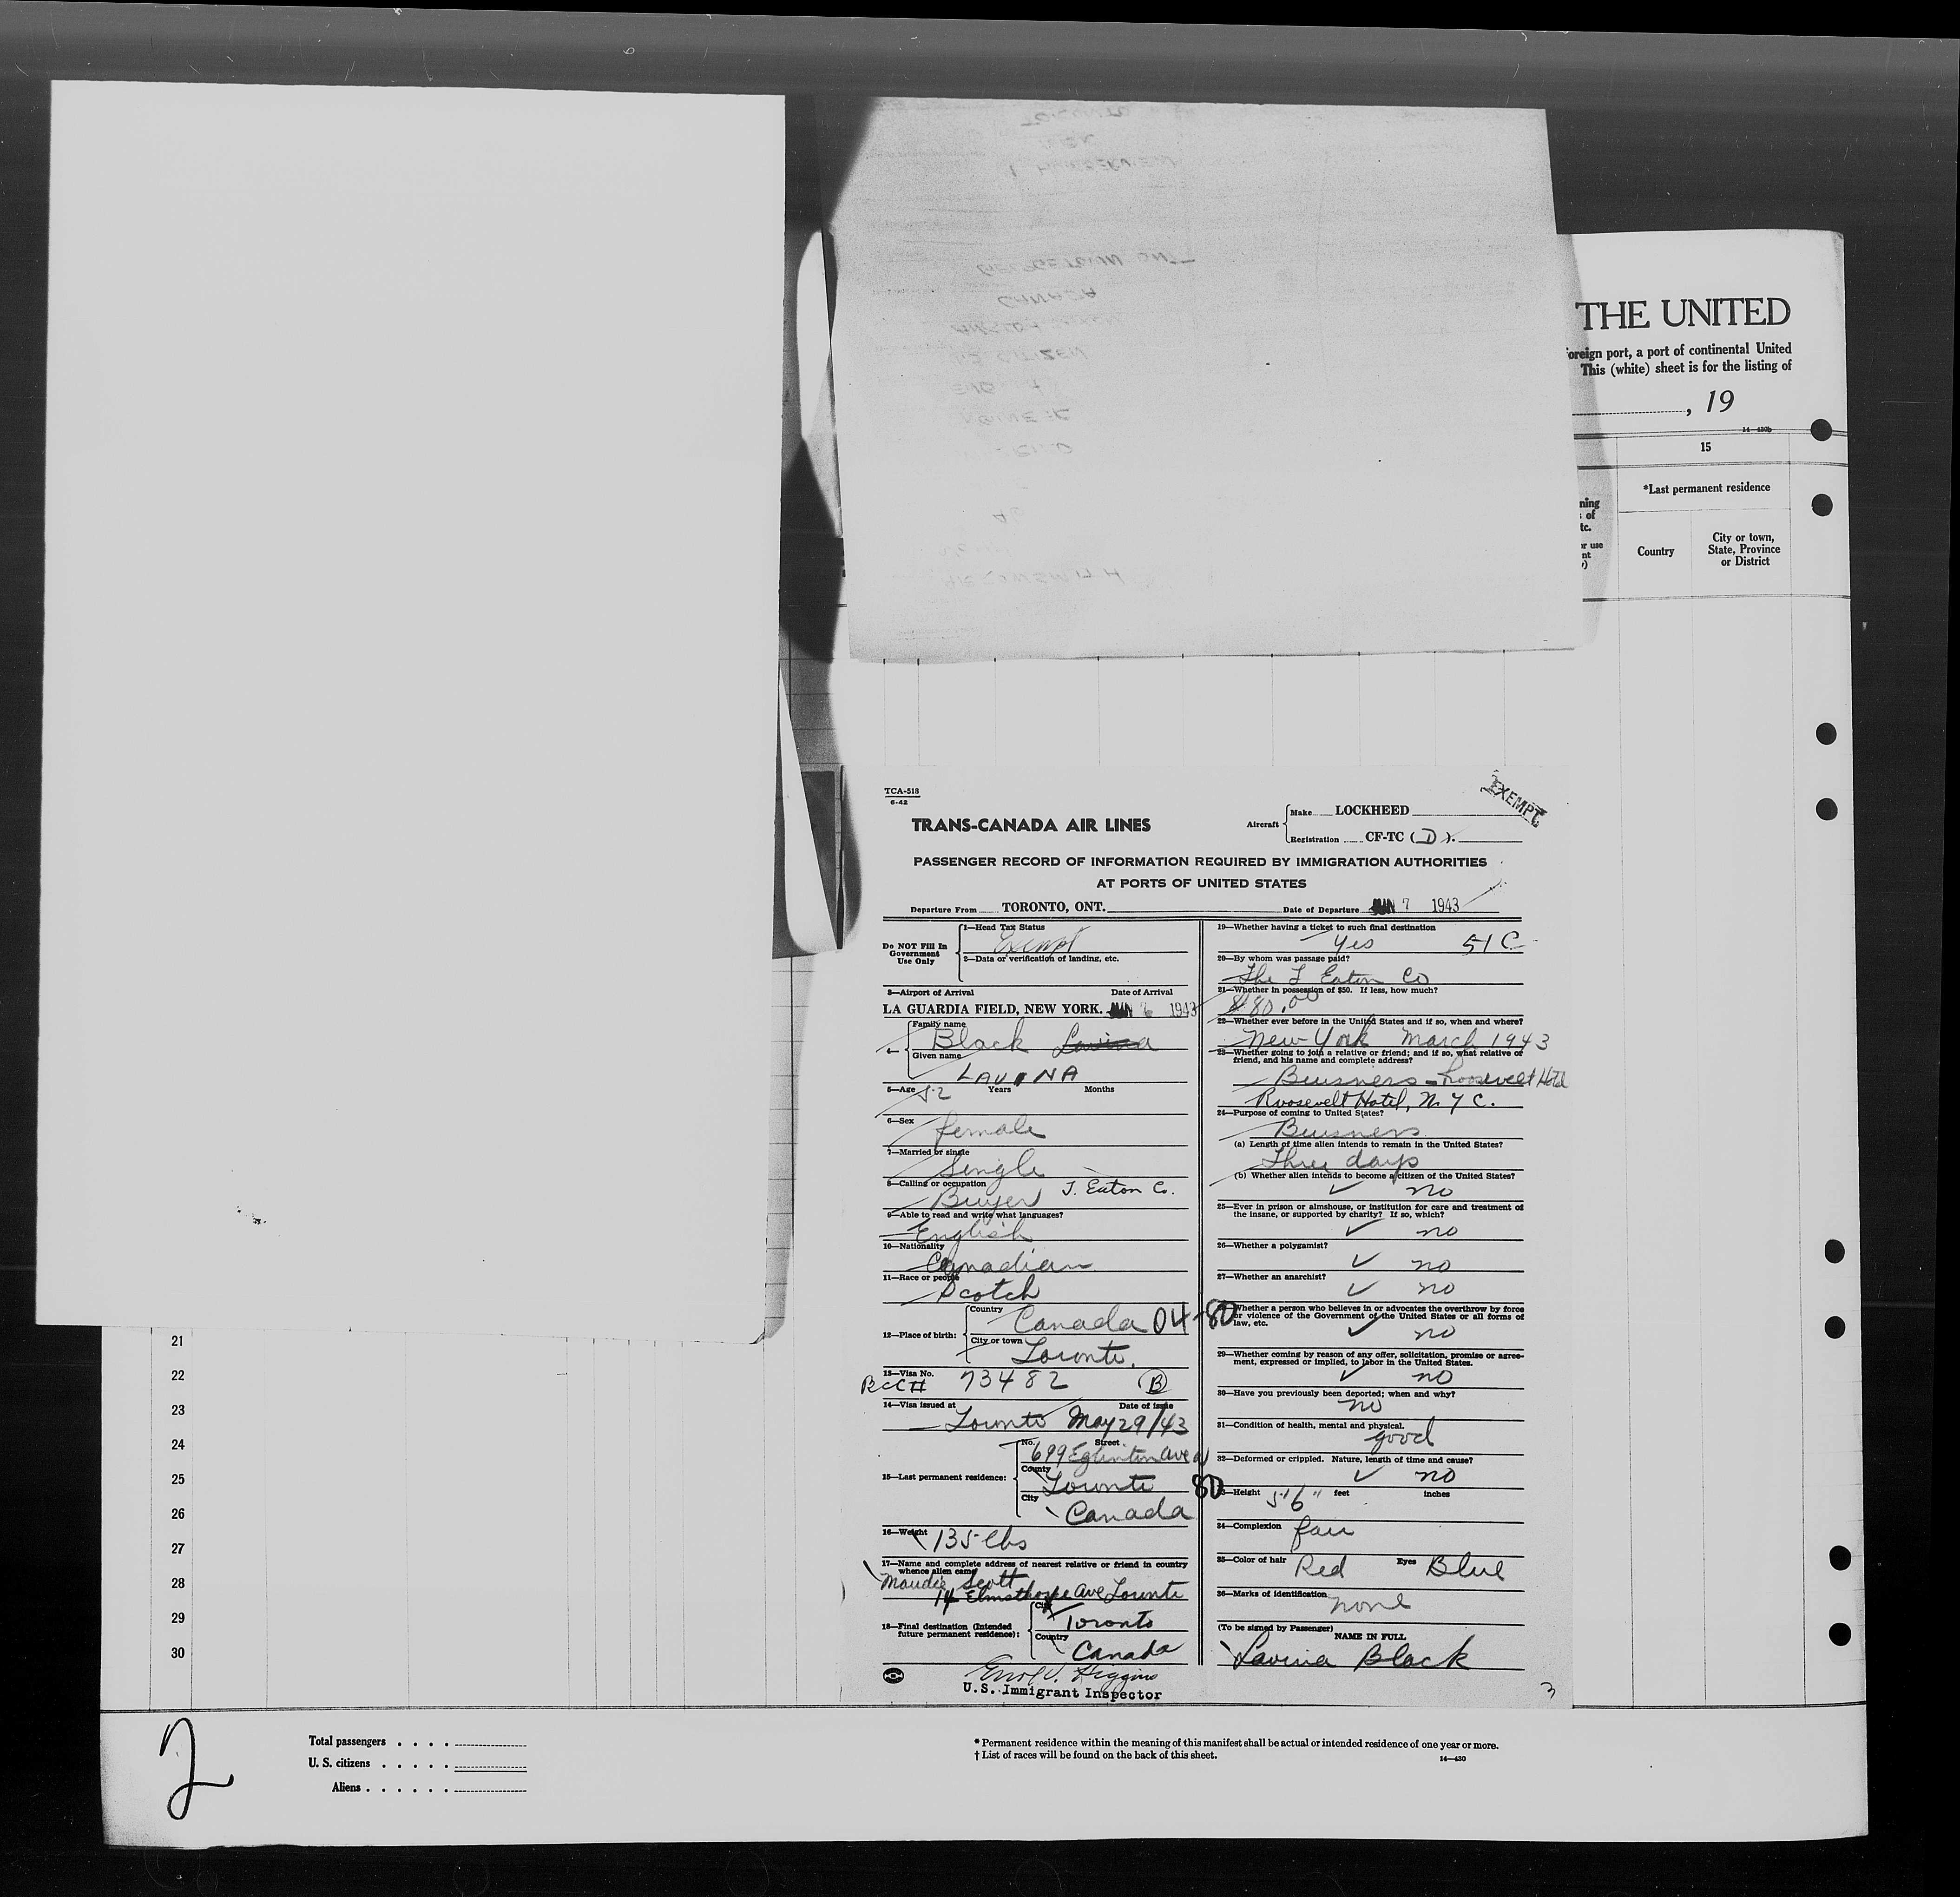 THE UNITED
oreign port, a port of continental United
This (white) sheet is for the listing of
, 19
14—430b
15
*Last permanent residence
ning
of
tc.
or use
nt
Country
City or town,
State, Province
or District
TCA-518
6-42
EXEMPT
TRANS-CANADA AIR LINES
Aircraft
Make LOCKHEED
Registration CF-TC (D).
PASSENGER RECORD OF INFORMATION REQUIRED BY IMMIGRATION AUTHORITIES
AT PORTS OF UNITED STATES
Departure From TORONTO, ONT.
Date of Departure JUN 7 1943
Do NOT Fill In
Government
Use Only
1—Head Tax Status
Exempt
2—Data or verification of landing, etc.
3—Airport of Arrival Date of Arrival
LA GUARDIA FIELD, NEW YORK. JUN 1943
4—
Family name
Black Lavina
Given name
LAVINA
5—Age 52 Years Months
6—Sex
female
7—Married or single
Single
8—Calling or occupation
Buyer T. Eaton Co.
9—Able to read and write what languages?
English
10—Nationality
Canadian
11—Race or people
Scotch
12—Place of birth:
Country
Canada 04-80
City or town
Toronto.
13—Visa No.
BCC# 73482 (B)
14—Visa issued at Date of issue
Toronto May 29/43
15—Last permanent residence:
No. Street
699 Eglinton Ave W
County
Toronto 80
City
Canada
16—Weight 135 lbs
17—Name and complete address of nearest relative or friend in country
whence alien came
Maudie Scott
14 Elmsthorpe Ave Toronto
18—Final destination (Intended
future permanent residence):
City
Toronto
Country
Canada
Higgins
U.S. Immigrant Inspector
19—Whether having a ticket to such final destination
Yes 51C
20—By whom was passage paid?
The T Eaton Co
21—Whether in possession of $50. If less, how much?
$80.00
22—Whether ever before in the United States and if so, when and where?
New York March 1943
23—Whether going to join a relative or friend; and if so, what relative or
friend, and his name and complete address?
Business - Roosevelt Hotel
Roosevelt Hotel, N.Y.C.
24—Purpose of coming to United States?
Business
(a) Length of time alien intends to remain in the United States?
Three days
(b) Whether alien intends to become a citizen of the United States?
✓ no
25—Ever in prison or almshouse, or institution for care and treatment of
the insane, or supported by charity? If so, which?
✓ no
26—Whether a polygamist?
✓ no
27—Whether an anarchist?
✓ no
Whether a person who believes in or advocates the overthrow by force
or violence of the Government of the United States or all forms of
law, etc.
✓ no
29—Whether coming by reason of any offer, solicitation, promise or agree-
ment, expressed or implied, to labor in the United States.
✓ no
30—Have you previously been deported; when and why?
no
31—Condition of health, mental and physical.
good
32—Deformed or crippled. Nature, length of time and cause?
✓ no
33—Height 5'6" feet inches
34—Complexion fair
35—Color of hair Red Eyes Blue
36—Marks of identification
none
(To be signed by Passenger)
NAME IN FULL
Lavina Black
3
21
22
23
24
25
26
27
28
29
30
2
Total passengers
U. S. citizens
Aliens
* Permanent residence within the meaning of this manifest shall be actual or intended residence of one year or more.
† List of races will be found on the back of this sheet.
14—430